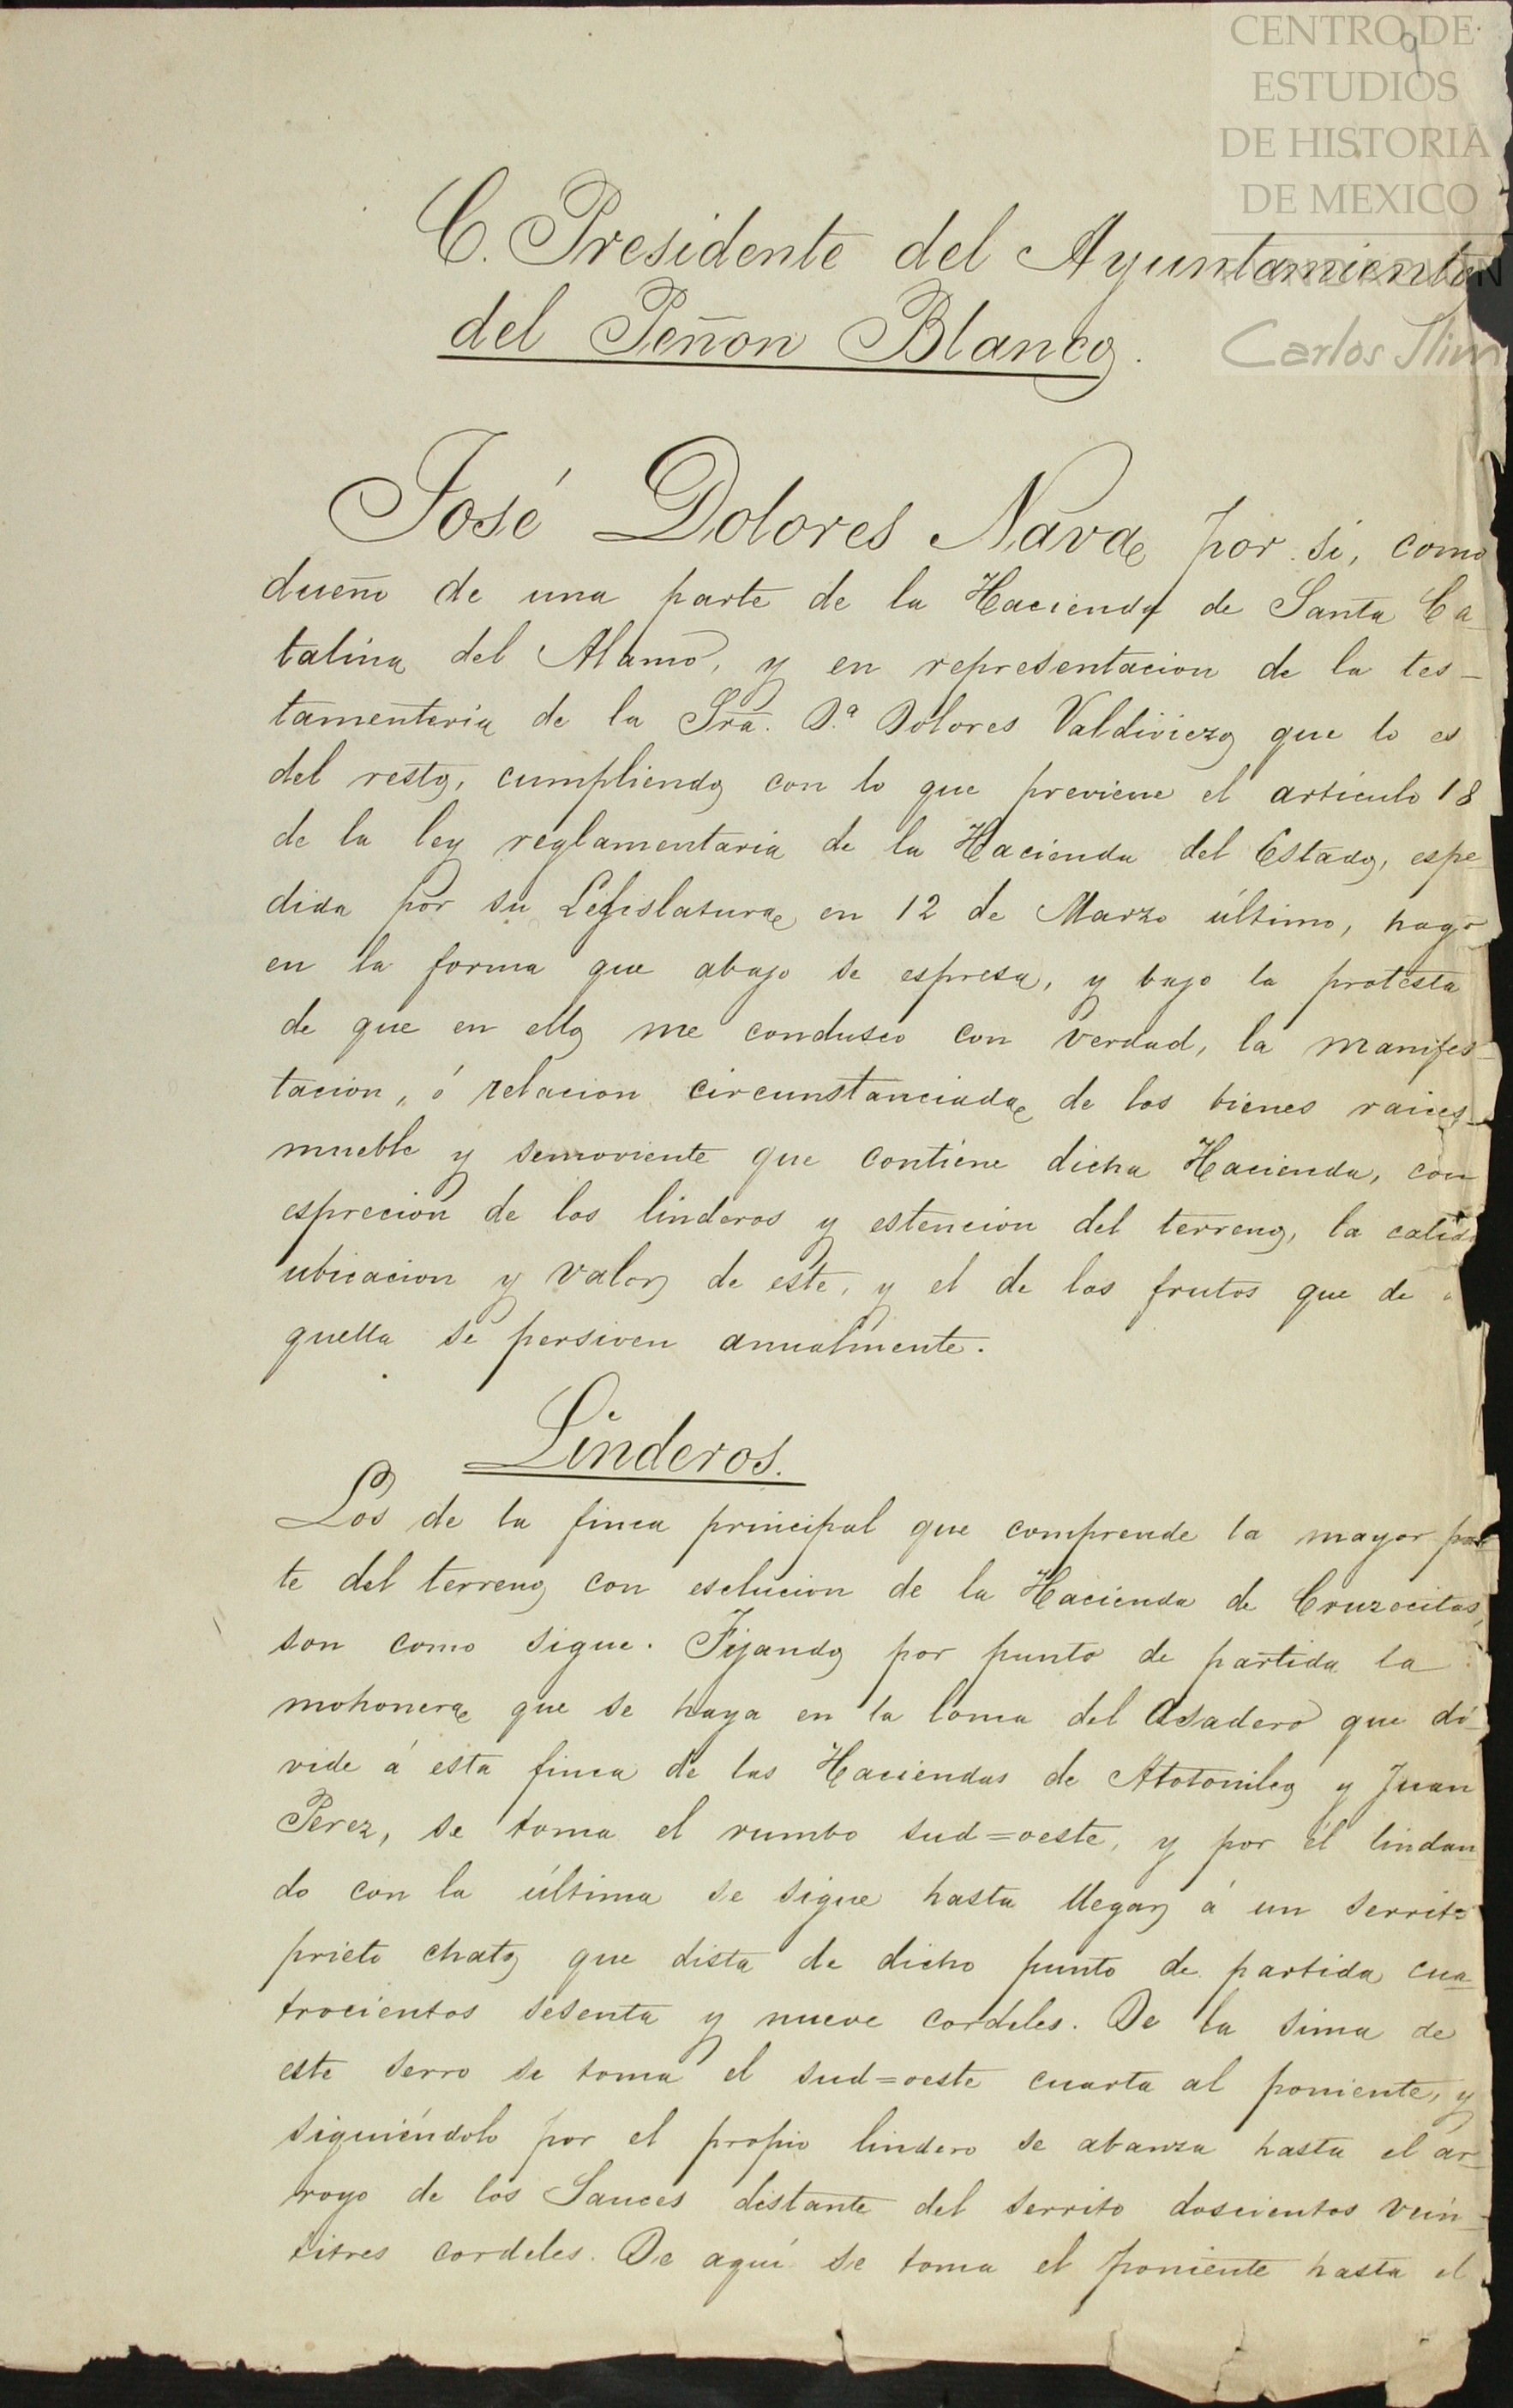 CENTRO DE
ESTUDIOS
DE HISTORIA
DE MEXICO
Carlos Slim
C. Presidente del Ayuntamiento
del Peñon Blanco.
José Dolores Nava por si, como
dueño de una parte de la Hacienda de Santa Ca-
talina del Alamo, y en representacion de la tes-
tamenteria de la Sra. D.ª Dolores Valdiviezo que lo es
del resto, cumpliendo con lo que previene el artículo 18
de la ley reglamentaria de la Hacienda del Estado, espe-
dida por su Legislatura en 12 de Marzo último, hago
en la forma que abajo se espresa, y bajo la protesta
de que en ello me condusco con verdad, la manifes-
tacion, ó relacion circunstanciada de los bienes raices
mueble y semoviente que contiene dicha Hacienda, con
esprecion de los linderos y estencion del terreno, la calid
ubicacion y valor de este, y el de los frutos que de a
quella se persiven anualmente.
Linderos.
Los de la finca principal que comprende la mayor par
te del terreno con esclucion de la Hacienda de Cruzecitas,
son como sigue. Fijando por punto de partida la
mohonera que se haya en la loma del Asadero que di-
vide á esta finca de las Haciendas de Atotonilco y Juan
Perez, se toma el rumbo sud=oeste, y por él lindan-
do con la última se sigue hasta llegar á un serrito
prieto chato que dista de dicho punto de partida cua-
trocientos sesenta y nueve cordeles. De la sima de
este serro se toma el sud=oeste cuarta al poniente, y
siguiéndolo por el propio lindero se abanza hasta el ar-
royo de los Sauces distante del serrito doscientos vein-
titres cordeles. De aquí se toma el poniente hasta el